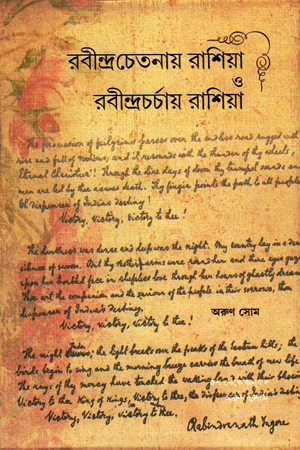 রবীন্দ্রচেতনায় রাশিয়া
ও
রবীন্দ্রচর্চায় রাশিয়া
The procession of pilgrims passes over the endless road rugged with
rise and fall of nations, and it resounds with the thunder of thy wheels,
Eternal Charioteer! Through the dire days of doom thy trumpet sounds and
men are led by thee across death. Thy finger points the path to all people,
Oh dispenser of India's destiny!
Victory, Victory, Victory to thee!
The darkness was dense and deep was the night. My country lay in a deathlike
silence of swoon. But thy mother arms were round her and thine eyes gazed
upon her troubled face in sleepless love through her hours of ghastly dreams.
Thou art the companion and the saviour of the people in their sorrows, thou
dispenser of India's destiny,
Victory, victory, victory to thee!
অরুণ সোম
The night fades; the light breaks over the peaks of the Eastern hills; the
birds begin to sing and the morning breeze carries the breath of new life.
The rays of thy mercy have touched the waking land with their blessings.
Victory to thee King of Kings, Victory to thee, the dispenser of India's destiny
Victory, Victory, Victory to thee.
Rabindranath Tagore